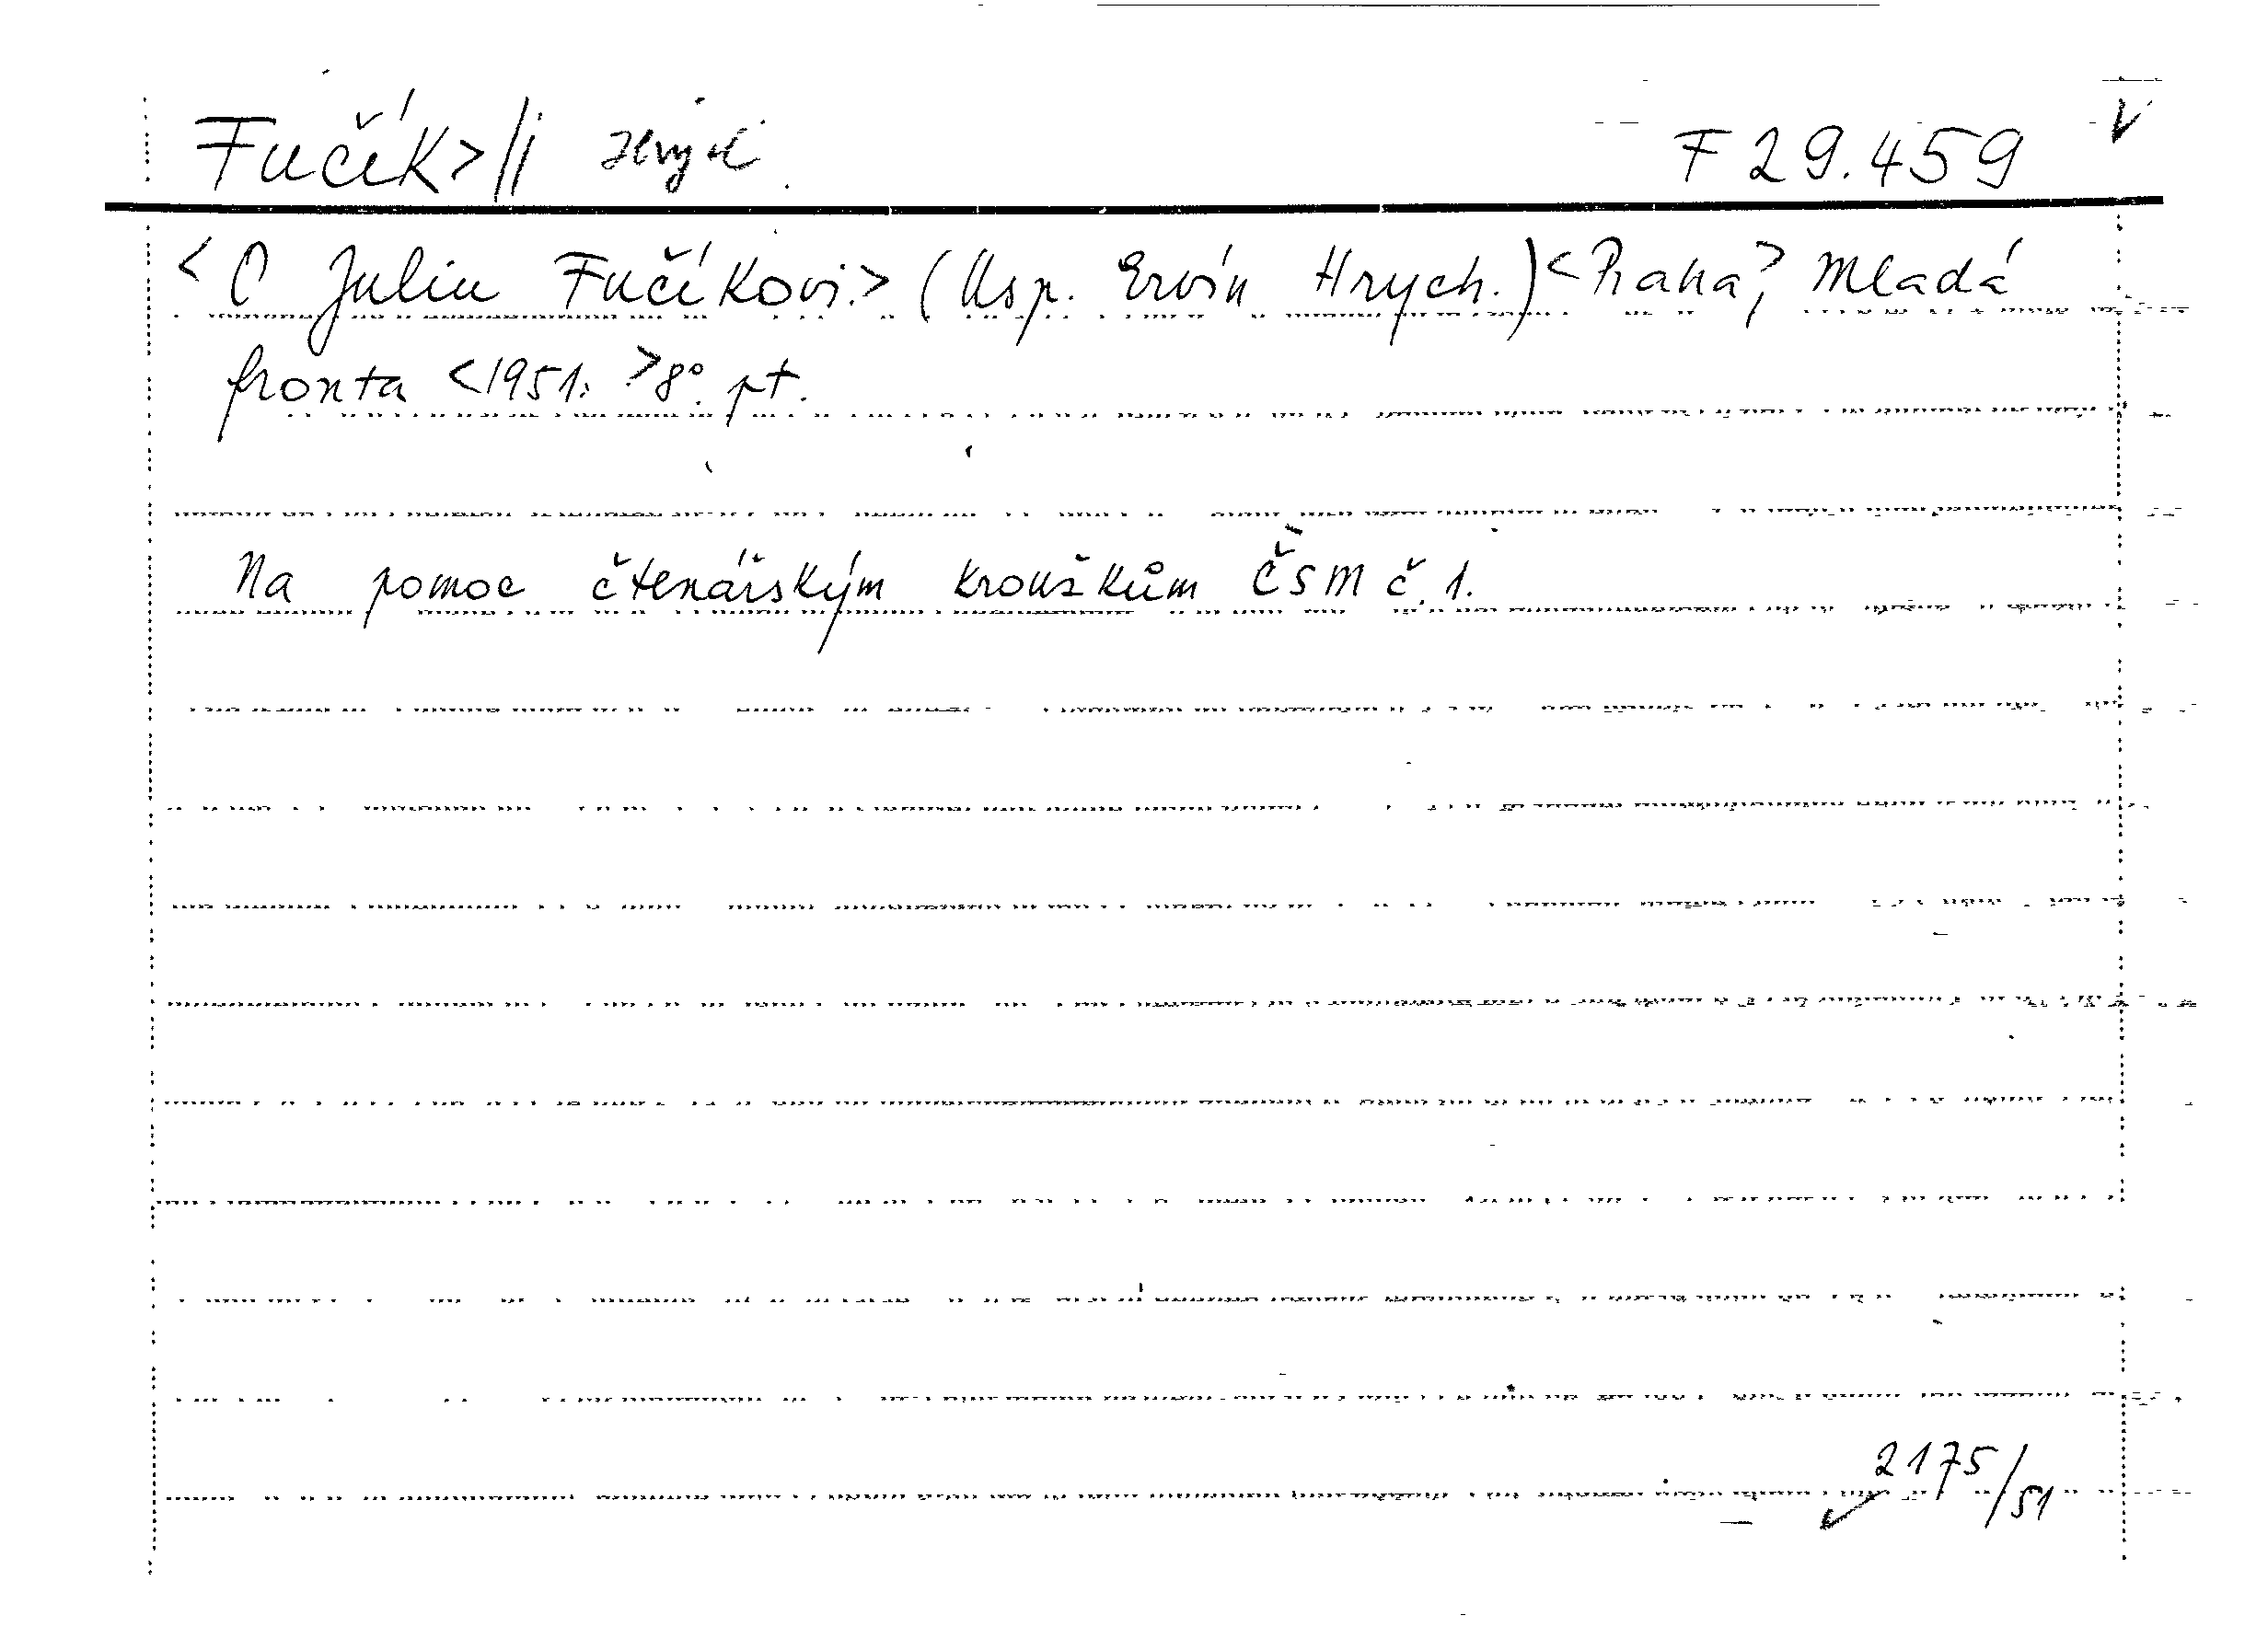 Fučík>//
F 29.459
<O Juliu Fučíkovi.> (Usp. Ervín Hrych.) <Praha>, Mladá
fronta <1951.>8°. pt.
Na pomoc čtenářským kroužkům ČSM č. 1.
2175/51